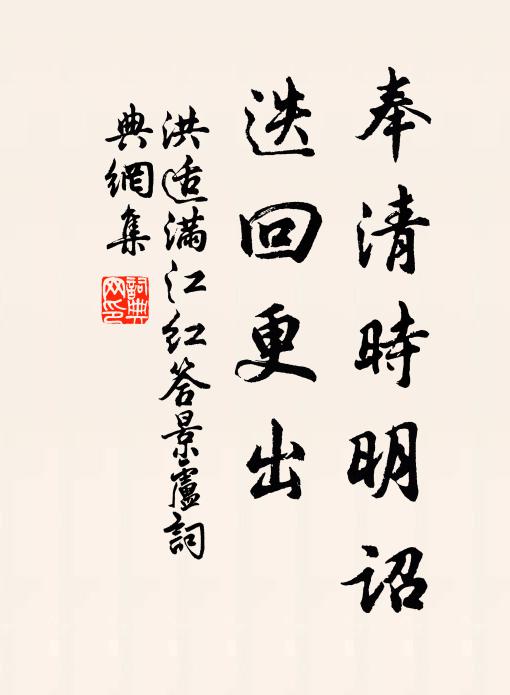 奉清時明詔
迭回更出
洪适滿江紅答景盧詞
典網集
詞典网印